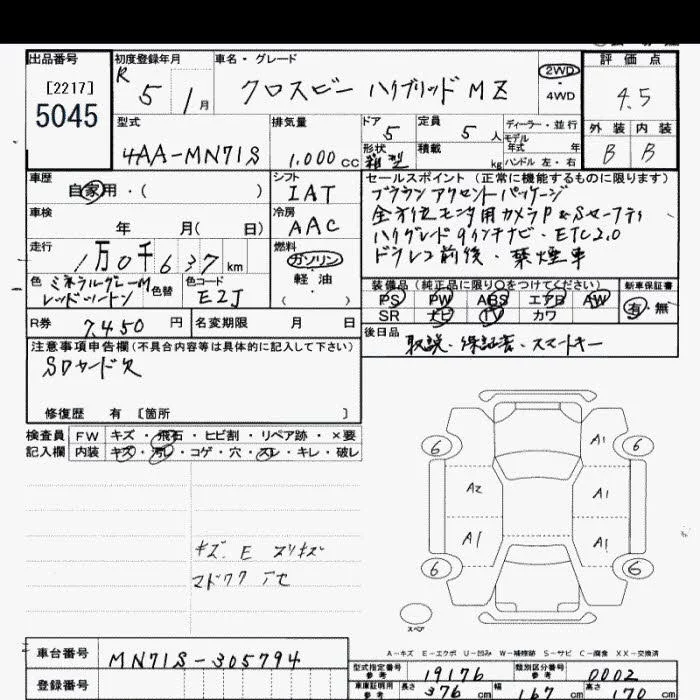 出品番号 初度登録年月 車名・グレード 評価点
[2217] R 5 1月 クロスビー ハイブリッド MZ 2WD ・ 4WD 4.5
5045
型式 排気量 ドア 定員 ディーラー・並行 外装 内装
4AA-MN71S 1.000cc 5 5人 モデル年式 年 B B
形状 積載 kg ハンドル 左・右
車歴 シフト セールスポイント(正常に機能するものに限ります)
自家用・( ) IAT ブラウンアクセントパッケージ
車検 冷房 全方位モニタ用カメラP&Sセーフティ
年 月( 日) AAC ハイグレード9インチナビ・ETC2.0
走行 燃料 ドラレコ前後・禁煙車
1万0千637km ガソリン
色 ミネラルグレーM 色替 色コード 軽油
レッドツートン E2J ( )
装備品(純正品に限り○をつけてください) 新車保証書
PS PW ABS エアB AW 有・無
SR ナビ TV カワ
R券 7,450円 名変期限 月 日
後日品 取説・保証書・スマートキー
注意事項申告欄(不具合内容等は具体的に記入して下さい)
SDカード欠
修復歴 有 [箇所 ]
検査員 FW キズ・飛石・ヒビ割・リペア跡・×要
記入欄 内装 キズ・汚レ・コゲ・穴・スレ・キレ・破レ
6 A1 6
A2 A1
A1 A1
6 6
スペア
キズ、E スリキズ
マドワク アセ
A-キズ E-エクボ U-凹み W-補修跡 S-サビ C-腐食 XX-交換済
車台番号 MN71S-305794
型式指定番号 参考 19176 類別区分番号 参考 0002
登録番号
車庫証明用 参考 長さ 376cm 幅 167cm 高さ 170cm